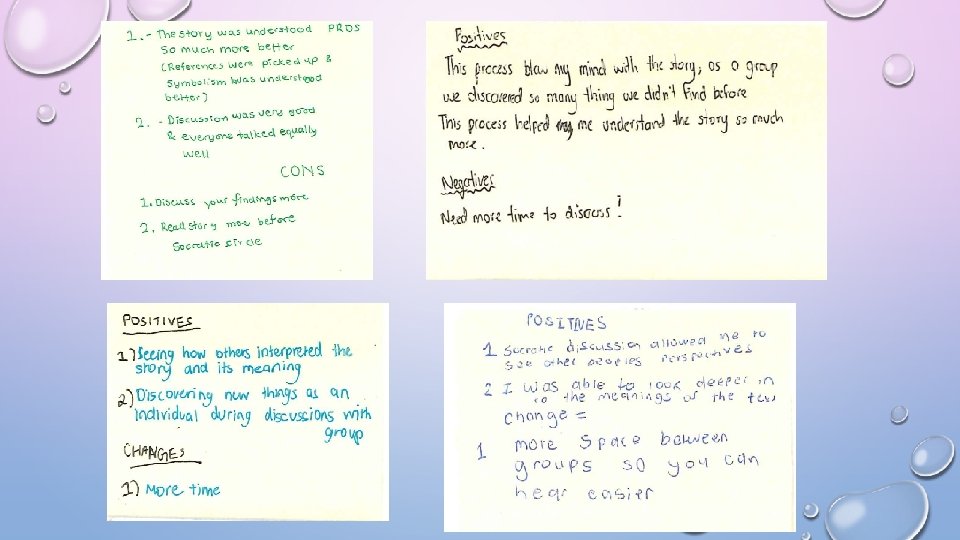 1. - The story was understood PROS
so much more better
(References were picked up &
symbolism was understood
better)
2. - Discussion was very good
& everyone talked equally
well
CONS
1. Discuss your findings more
2. Read story more before
Socratic circle
Positives
This process blew my mind with the story, as a group
we discovered so many thing we didn't find before
This process helped me understand the story so much
more.
Negatives
Need more time to discuss!
POSITIVES
1) Seeing how others interpreted the
story and its meaning
2) Discovering new things as an
individual during discussions with
group
CHANGES
1) More time
POSITIVES
1 Socratic discussion allowed me to
see other peoples perspectives
2 I was able to look deeper in
to the meanings of the text
change =
1 more space between
groups so you can
hear easier